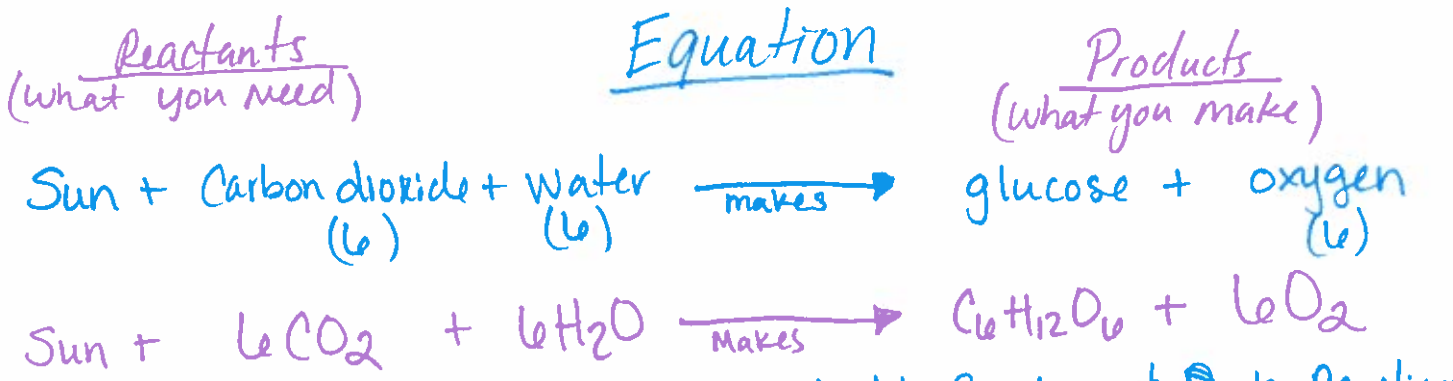 Reactants Equation Products
(what you need) (what you make)
Sun + Carbon dioxide + Water makes glucose + oxygen
(6) (6) (6)
Sun + 6CO₂ + 6H₂O Makes C₆H₁₂O₆ + 6O₂